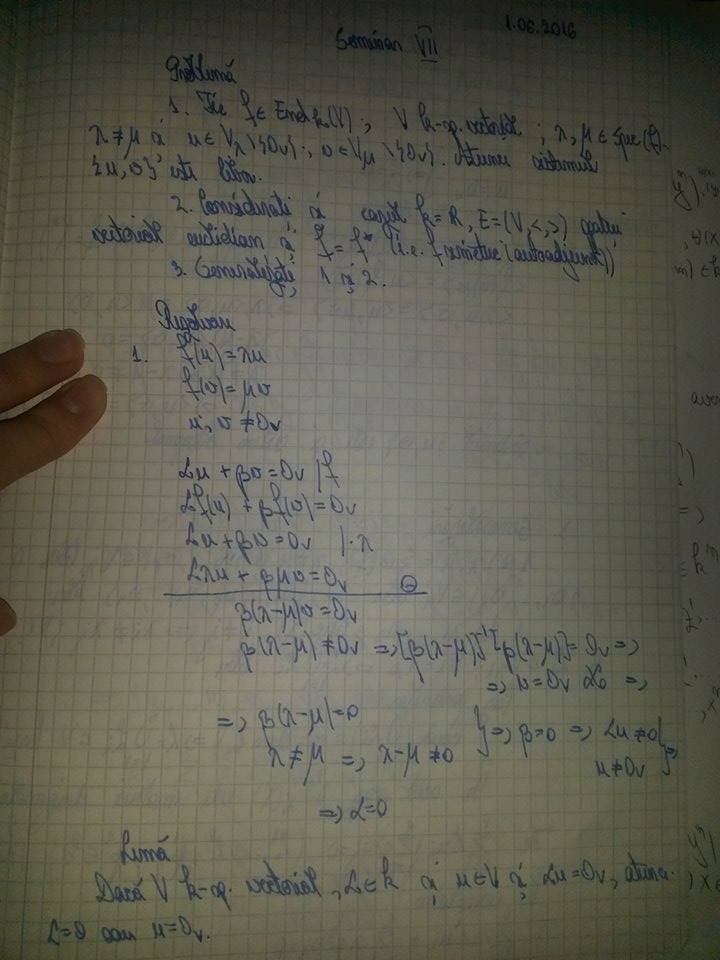 1.06.2016
Seminar VII
Problemă
1. Fie f ∈ End k(V); V k-sp. vectorial; λ, μ ∈ Spec(f).
λ ≠ μ și u ∈ Vλ \ {0v}; v ∈ Vμ \ {0v}. Atunci sistemul
{u, v} este liber.
2. Considerați și cazul k = R, E = (V, <,>) spațiu
vectorial euclidian și f = f* (i.e. f simetric (autoadjunct))
3. Generalizați 1 și 2.
Rezolvare
1. f(u) = λu
f(v) = μv
u, v ≠ 0v
αu + βv = 0v | f
αf(u) + βf(v) = 0v
αu + βv = 0v | · λ
αλu + βμv = 0v ⊖
β(λ-μ)v = 0v
β(λ-μ) ≠ 0v => [β(λ-μ)]⁻¹ [β(λ-μ)] = 0v =>
=> v = 0v =>
=> β(λ-μ) = 0
λ ≠ μ => λ-μ ≠ 0 } => β = 0 => αu ≠ 0 } =>
u ≠ 0v
=> α = 0
Lemă
Dacă V k-sp. vectorial, α ∈ k și u ∈ V și αu = 0v, atunci
α = 0 sau u = 0v.